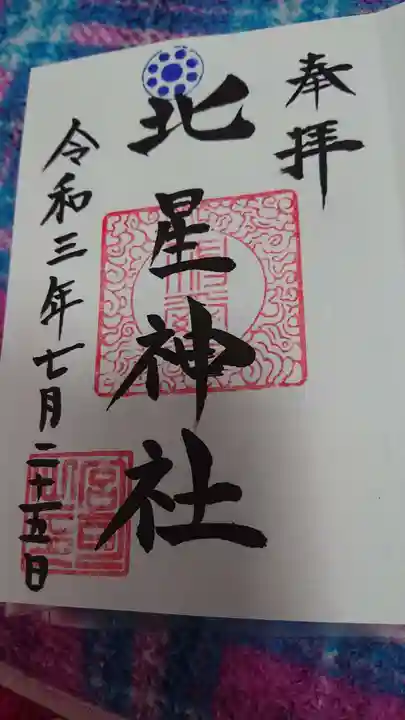 奉拝
北星神社
令和三年七月二十五日